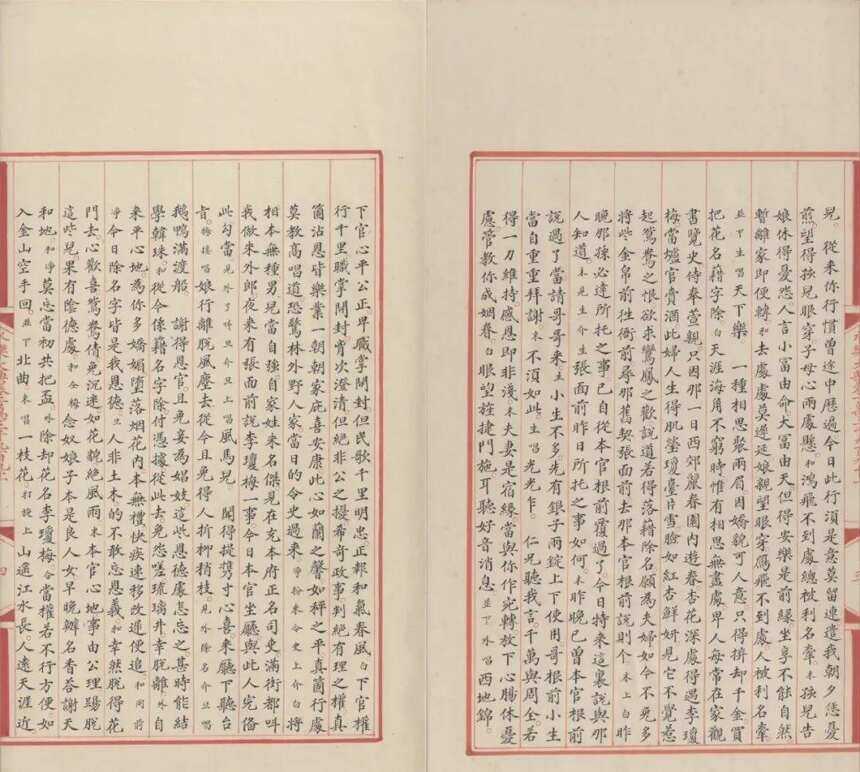 兒。從來你行慣曾途中歷過今日此行須是意莫留連遣我朝夕恁憂
煎望得孩兒眼穿。子母心兩處懸。和鴻飛不到處總被利名牽。末孩兒告
娘休得憂恣人言小富由命大富由天但得安樂是前緣坐享不能自然
暫離家即便轉和去處處莫遲延娘親望眼穿鴈飛不到處人被利名牽
並下生唱天下樂 一種相思聚兩眉因嬌貌可人意只得拚却千金買
把花名藉字除白天涯海角不窮時惟有相思無盡處卑人每常在家觀
書覽史侍奉萱親只因那一日西郊麗春園內遊春杏花深處得遇李瓊
梅當壚官賣酒此婦人生得肌瑩瓊臺雪臉如紅杏鮮妍見它不覺惹
起鴛鴦之恨欲求鸞鳳之歡說道若得落籍除名願為夫婦如今不免多
將些金帛前往衙前尋那舊契張面前去那本官根前說則个末上白昨
晚那孫必達所托之事已自從本官根前覆過了。今日特來這裏說與那
人知道末見生介生張面前昨日所托之事如何末昨晚已曾本官根前
說過了當請哥哥來主小生不多。先有銀子兩錠上下使用哥根前小生
當自重重拜謝末不須如此。生唱光光乍。仁兄聽我言。千萬與周全若
得一刀維持感恩即非淺末夫妻是宿緣當與你作宛轉放下心腸休憂
慮。管教你成姻眷白眼望旌捷門施。耳聽好音消息並下外唱西地錦。
下官心平公正早職掌開封但民歌千里明忠正報和氣春風白下官權
行千里職掌開封宵次澄清但絕非公之擾希奇政事到絕有理之權真
箇沾恩皆樂業一朝朝家庇喜安康此心如蘭之馨如秤之平真箇行處
莫教高唱道恐驚林外野人家當日的令史過來淨扮末令史上介白將
相本無種男兒當自強自家姓朱名傑見在充本府正名司吏滿街都呌
我做朱外郎夜來有張面前說李瓊梅一事。今日本官坐廳與此人完俻
此勾當見外了呌旦介旦上唱風馬兒 聞得提携寸心喜來廳下聽台
旨。梅接唱娘行離脫風塵去從今且免得人折柳稍枝。見外除名介旦唱
鵝鴨滿渡船。 謝得恩官。旦免妾為娼妓這些恩德處怎忘之。甚時能結
學韓珠。和從今係籍名字除付憑據從此去免怨嗟琉璃井幸脫離外自
來平心地為你多嬌媚墮落烟花內本無禮快疾速移改遷便追。和同前
淨今日除名字皆是我恩德旦人非土木的不敢忘恩義和幸然脫得花
門去心歡喜鴛鴦倩免沉迷。如花貌絶風雨末本官心地事由公理蹋脫
這些兒果有陰德處和合梅念奴娘子本是良人女早晚辦名香荅謝天
和地和淨莫忘當初共把盃外除却花名李瓊梅合當權若不行方便如
入金山空手回。並下北曲末唱一枝花打扮上山遥江水長。人遠天涯近